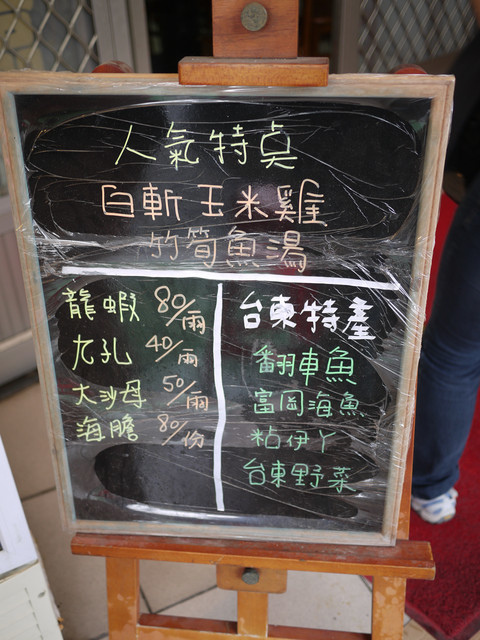 人氣特桌
白斬玉米雞
竹筍魚湯
龍蝦 80/兩
九孔 40/兩
大沙母 50/兩
海膽 80/份
台東特產
翻車魚
富岡海魚
粘伊丫
台東野菜